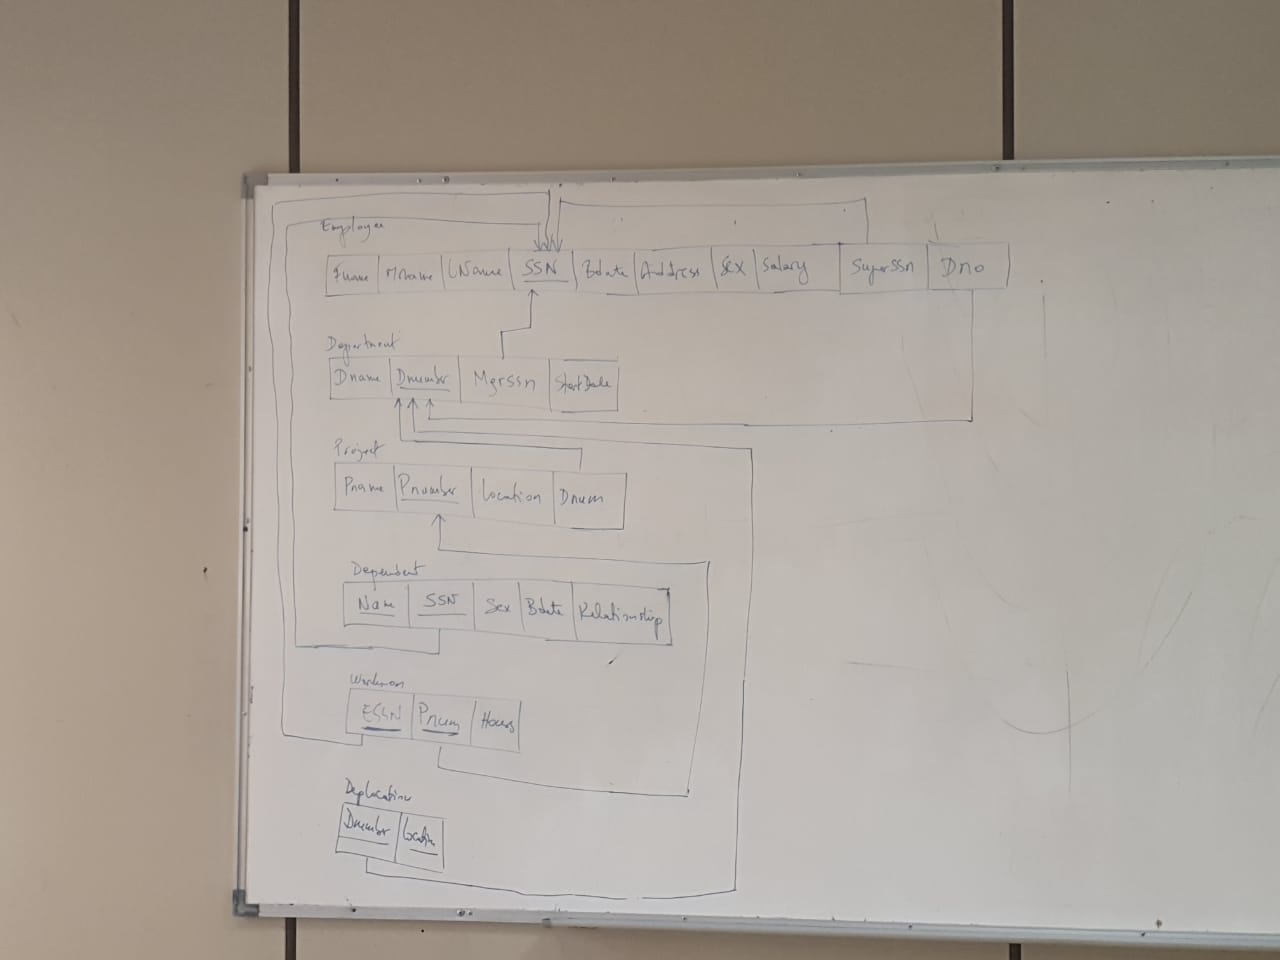 Employee
Fname Mname LName SSN Bdate Address Sex Salary SuperSSn Dno
Department
Dname Dnumber Mgrssn StartDate
Project
Pname Pnumber Location Dnum
Dependent
Name SSN Sex Bdate Relationship
Workson
ESSN Pnum Hours
Deplocation
Dnumber Location